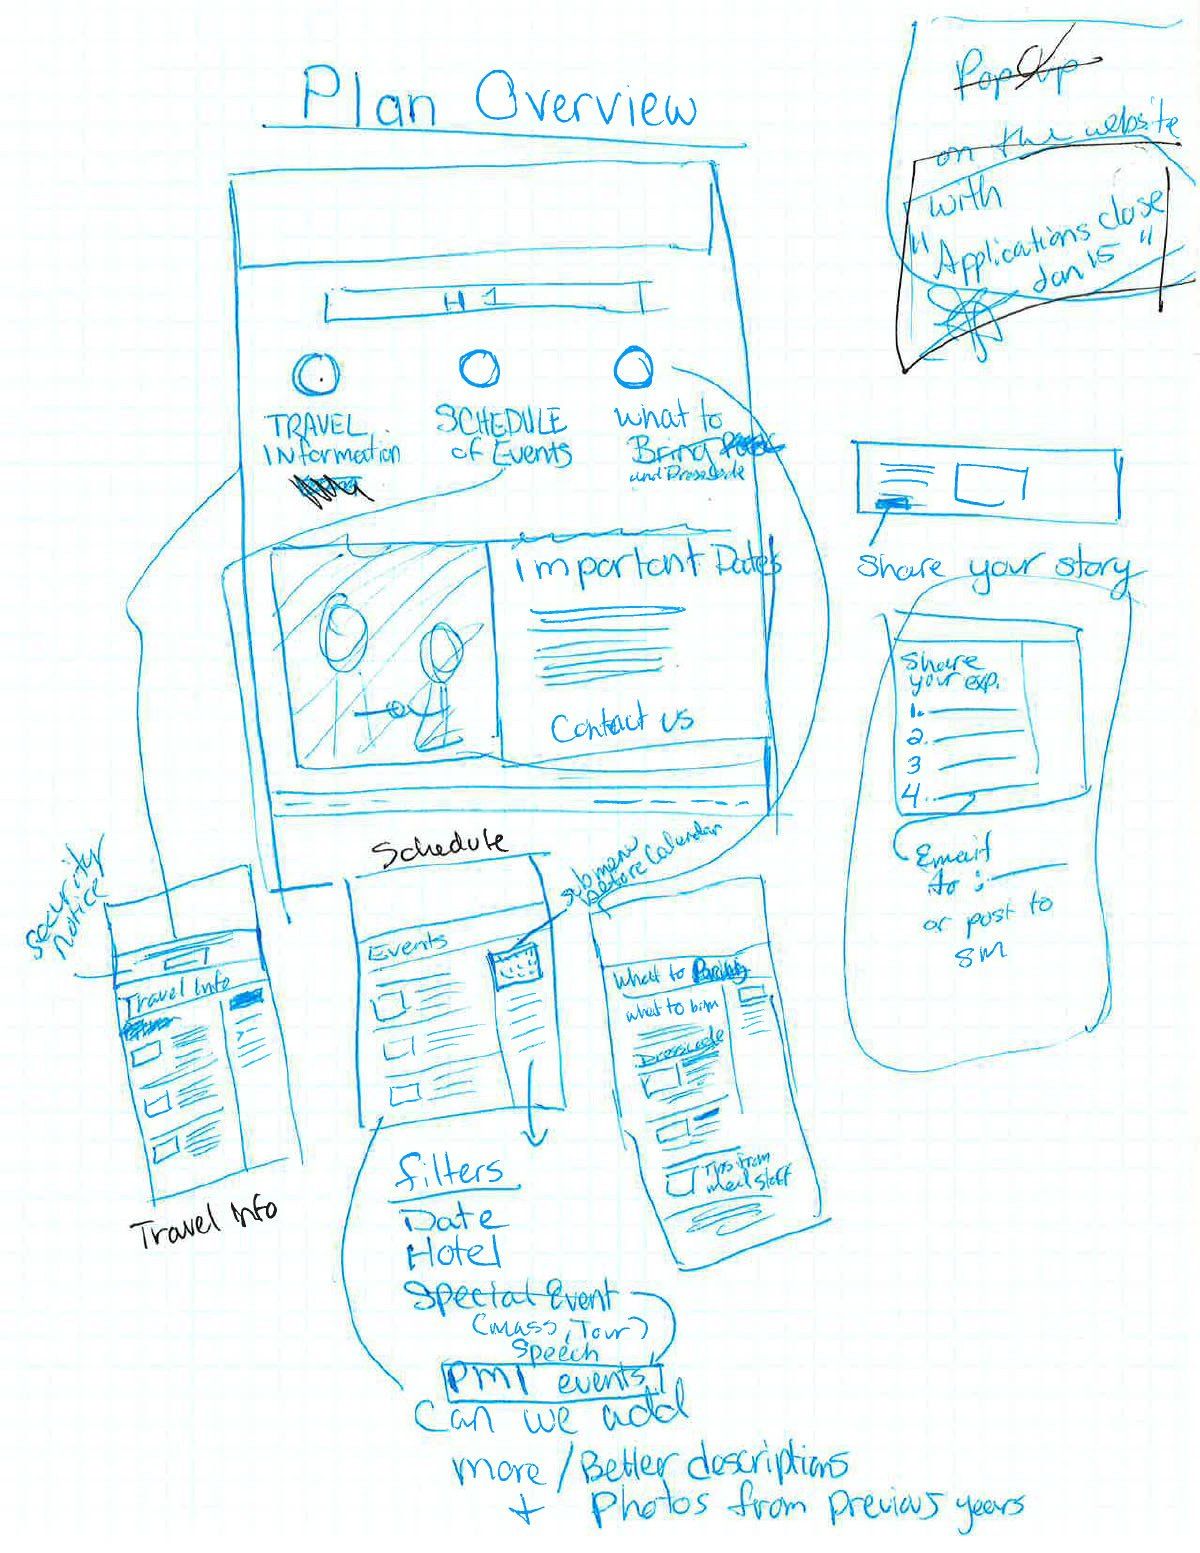 Plan Overview
Pop Up
on the website
with
"Applications close
Jan 15"
H1
TRAVEL
Information
SCHEDULE
of Events
What to
Bring
and Dresscode
Important Dates
Contact us
Share your story
Share
your exp.
1.
2.
3
4.
Email
to :
or post to
SM
Security
notice
Travel Info
Travel Info
Schedule
Events
submenu
before Calendar
What to
what to
Dresscode
Tips from
staff
filters
Date
Hotel
Special Event
(Mass, Tour)
Speech
PMI events
Can we add
more / Better descriptions
+ Photos from previous years